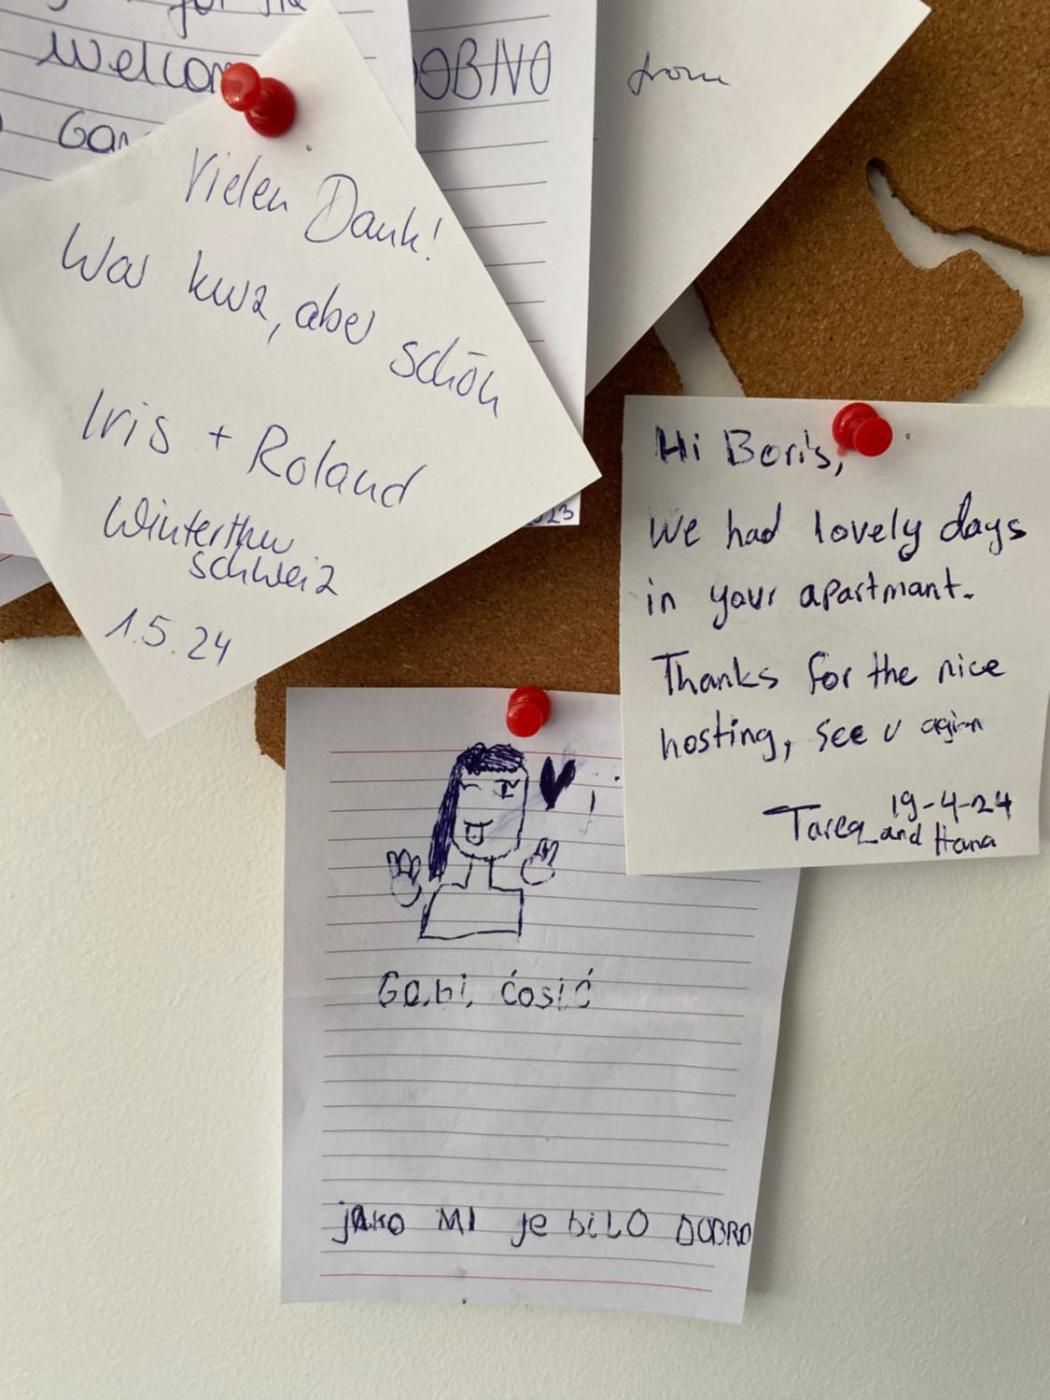 for the
Welcom
Gar
OBNO
from
Vielen Dank!
War kurz, aber schön
Iris + Roland
Winterthur
Schweiz
1.5.24
23
Hi Boris,
We had lovely days
in your apartmant.
Thanks for the nice
hosting, see u agian
19-4-24
Tareq and Hana
Gabi, ćosić
jAko MI je biLO DOBRO